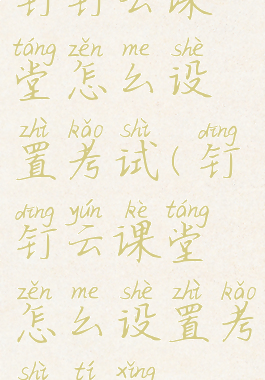 钉钉云课
táng zěn me shè
堂怎么设
zhì kǎo shì dīng
置考试(钉
dīng yún kè táng
钉云课堂
zěn me shè zhì kǎo
怎么设置考
shì tí xíng